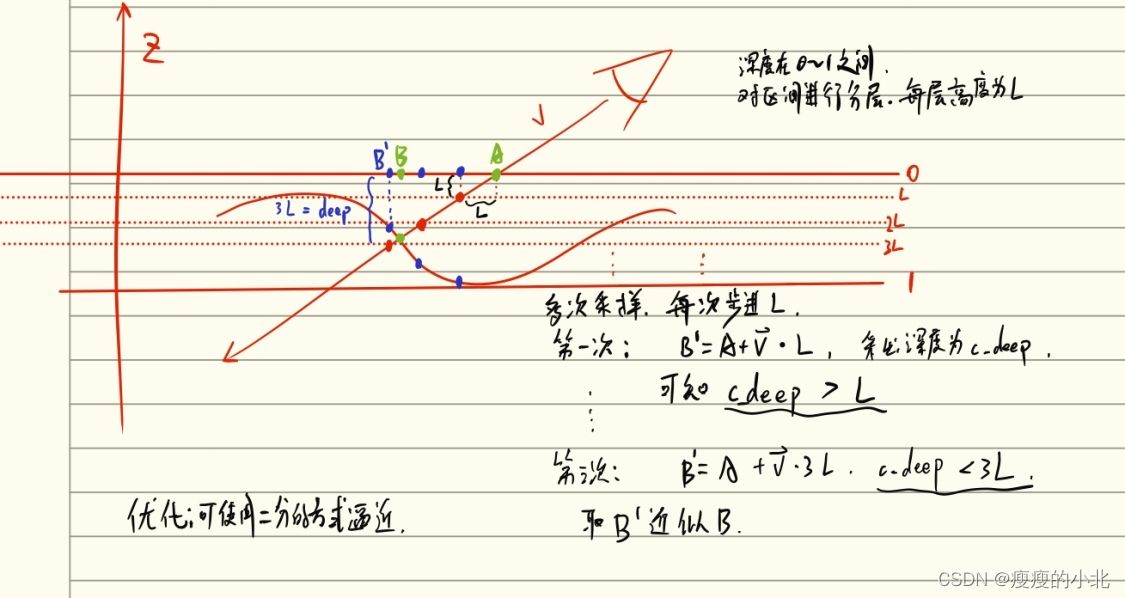 Z
深度在0~1之间.
对区间进行分层.每层高度为L
V
B' B A
0
L
L
L
3L = deep
2L
3L
1
多次采样,每次步进L.
第一次: B'=A+V·L, 采出深度为c_deep.
可知 c_deep > L
第三次: B'=A+V·3L. c_deep<3L.
取B'近似B.
优化:可使用二分的方式逼近.
CSDN @瘦瘦的小北